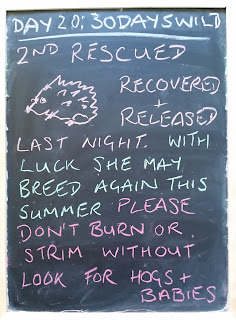 DAY 20: 30DAYSWILD
2ND RESCUED
RECOVERED
+
RELEASED
LAST NIGHT. WITH
LUCK SHE MAY
BREED AGAIN THIS
SUMMER PLEASE
DON'T BURN OR
STRIM WITHOUT
LOOK FOR HOGS +
BABIES